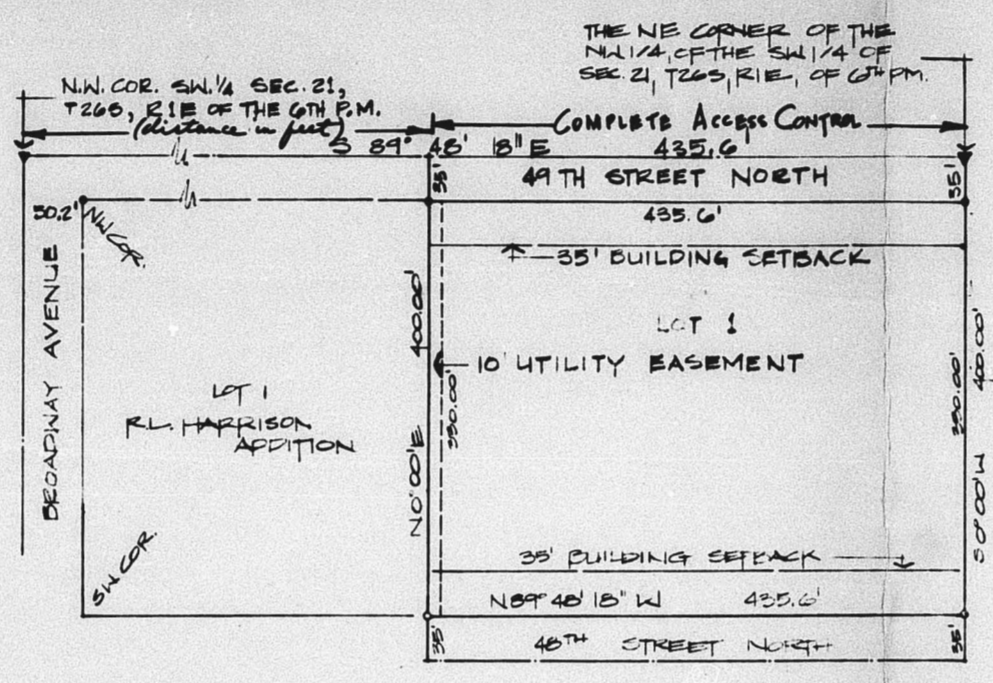 THE NE CORNER OF THE
NW 1/4, OF THE SW 1/4 OF
SEC. 21, T26S, R1E, OF 6TH PM.
N.W. COR. SW. 1/4 SEC. 21,
T26S, R1E OF THE 6TH P.M.
(distance in feet)
COMPLETE ACCESS CONTROL
S 89° 48' 18" E 435.6'
35'
49TH STREET NORTH
35'
50.2'
NW COR.
435.6'
35' BUILDING SETBACK
BROADWAY AVENUE
400.00'
LOT 1
10' UTILITY EASEMENT
330.00'
330.00'
400.00'
LOT 1
R.L. HARRISON
ADDITION
N0°00'E
S0°00'W
SW COR.
35' BUILDING SETBACK
N89° 48' 18" W 435.6'
35'
48TH STREET NORTH
35'